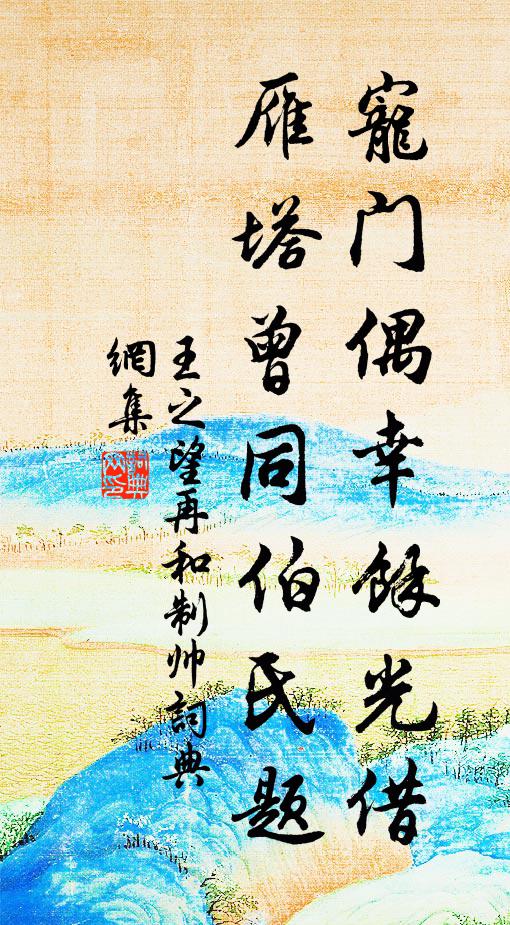 寵门偶幸餘光借
雁塔曾同伯氏题
王之望再和制帅詞典
網集